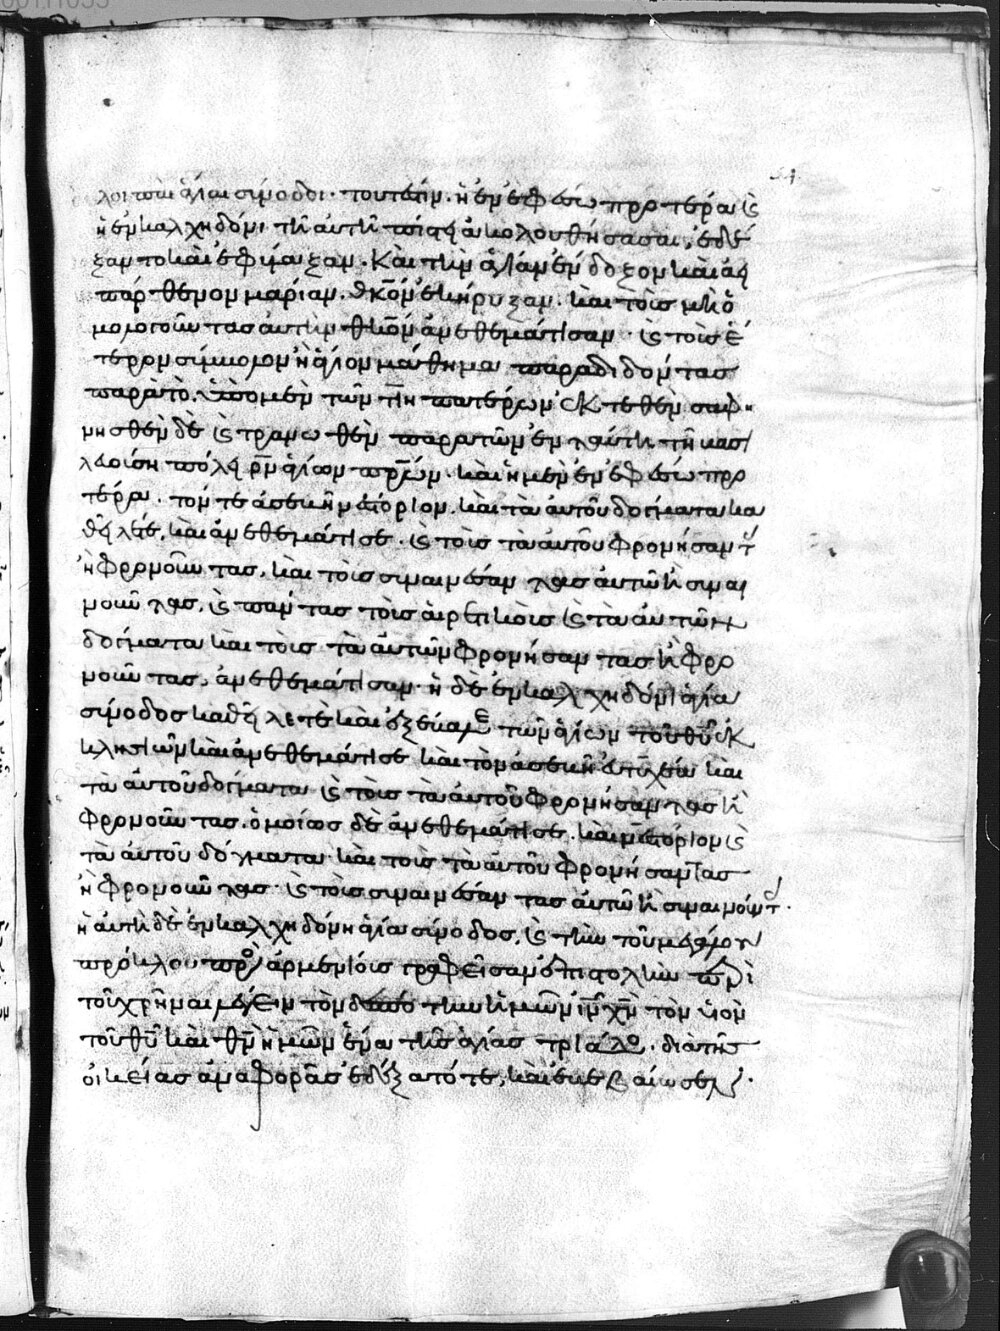 λοιπαὶ ἅγιαι σύνοδοι· τουτέστιν· ἡ ἐν ἐφέσω προτέρα κς
ἡ ἐν καλχηδόνι τῆ αὐτῆ πίστει ἀκολουθήσασαι, ἐδέ
ξαντο καὶ ἐσφίγξαν· καὶ τὴν ἁγίαν ἔνδοξον καὶ ἀει
πάρθενον μαρίαν, θκον ἐκήρυξαν· καὶ τοῖς μὴ ὁ
μολογοῦντας αὐτὴν θκον ἀνεθεμάτισαν· κς τοῖς ἕ
τερον σύμβολον ἢ ἅγιον μάθημα παραδιδόντας
παρὰ τὸ
μνησθὲν δὲ κς τρανωθὲν παρὰ τῶν ἐν ταύτη τῆ βασι
λευούση πόλει ρν ἁγίων πρων· καὶ ἡ μὲν ἐν ἐφέσω προ
τέρα· τόν τε ἀσεβῆ νεστόριον, καὶ τὰ αὐτοῦ δόγματα κα
θεῖλε, καὶ ἀνεθεμάτισε· κς τοῖς τὰ αὐτοῦ φρονήσαντ
ἢ φρονοῦντας, καὶ τοῖς συναινέσαντας αὐτῶ ἢ συναι
νοῦντας, κς πάντας τοῖς αἱρετικοῖς κς τὰ αὐτῶν
δόγματα καὶ τοῖς τὰ αὐτῶν φρονήσαντας ἢ φρο
νοῦντας, ἀνεθεμάτισαν· ἡ δὲ ἐν καλχηδόνι ἁγία
σύνοδος καθεῖλε τὲ καὶ ἐξέβαλε τῶν ἁγίων τοῦ θυ ἐκ
κλησιῶν καὶ ἀνεθεμάτισε καὶ τὸν ἀσεβῆ εὐτυχέα καὶ
τὰ αὐτοῦ δόγματα κς τοῖς τὰ αὐτοῦ φρονήσαντας ἢ
φρονοῦντας. ὁμοίως δὲ ἀνεθεμάτισε, καὶ νεστόριον κς
τὰ αὐτοῦ δόγματα· καὶ τοῖς τὰ αὐτοῦ φρονήσαντας
ἢ φρονοῦντας· κς τοῖς συναινέσαντας αὐτῶ ἢ συναινοῦντ·
ἡ αὐτὴ δὲ ἐν καλχηδόνι ἁγία σύνοδος, κς τὴν τοῦ μεγάλου
πρόκλου πρὸς ἀρμενίοις γραφεῖσαν ἐπιστολὴν περὶ
τοῦ χρῆναι λέγειν τὸν δεσπότην ἡμῶν ιν χν τὸν υἱὸν
τοῦ θυ καὶ θν ἡμῶν ἕνα τῆς ἁγίας τριάδος. διὰ τῆς
οἰκείας ἀναφορᾶς ἐδέξατό τε, καὶ ἐβεβαίωσεν·